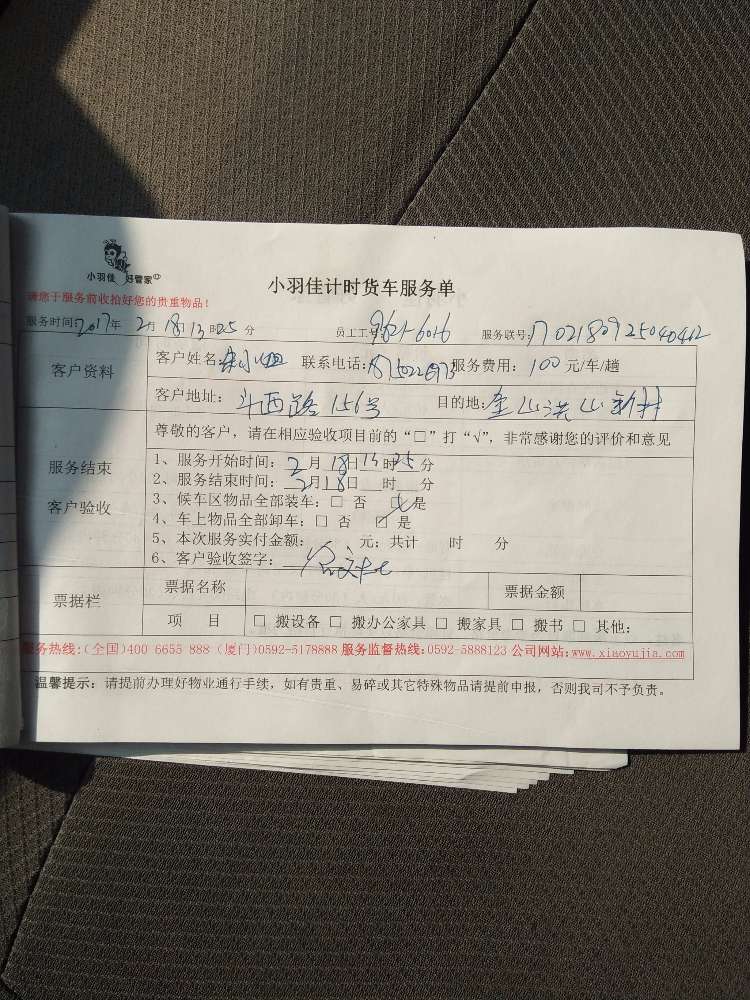 小羽佳 好管家
小羽佳计时货车服务单
请您于服务前收拾好您的贵重物品!
服务时间:2017年 2月 18日 13时25分 员工工号: 9621-6016 服务联号:
客户资料
客户姓名: 联系电话: 服务费用: 100 元/车/趟
客户地址: 斗西路 156号 目的地: 金山洪山新村
尊敬的客户,请在相应验收项目前的“□”打“√”,非常感谢您的评价和意见
服务结束
客户验收
1、服务开始时间: 2月 18日 13时25分
2、服务结束时间: 2月18日 时 分
3、候车区物品全部装车: □ 否 ☑ 是
4、车上物品全部卸车: □ 否 ☑ 是
5、本次服务实付金额: 元; 共计 时 分
6、客户验收签字:
票据栏
票据名称 票据金额
项 目 □ 搬设备 □ 搬办公家具 □ 搬家具 □ 搬书 □ 其他:
服务热线:(全国)400 6655 888 (厦门)0592-5178888 服务监督热线:0592-5888123 公司网站:www.xiaoyujia.com
温馨提示: 请提前办理好物业通行手续,如有贵重、易碎或其它特殊物品请提前申报,否则我司不予负责。